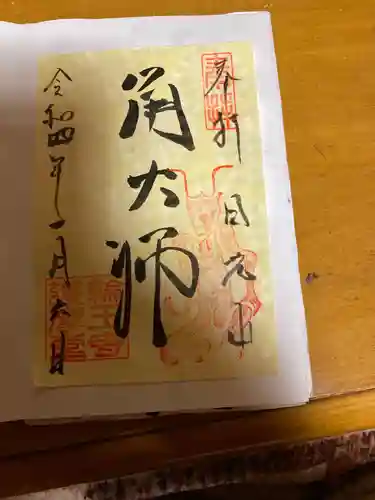 奉拝 日光山
角大師
令和四年一月六日